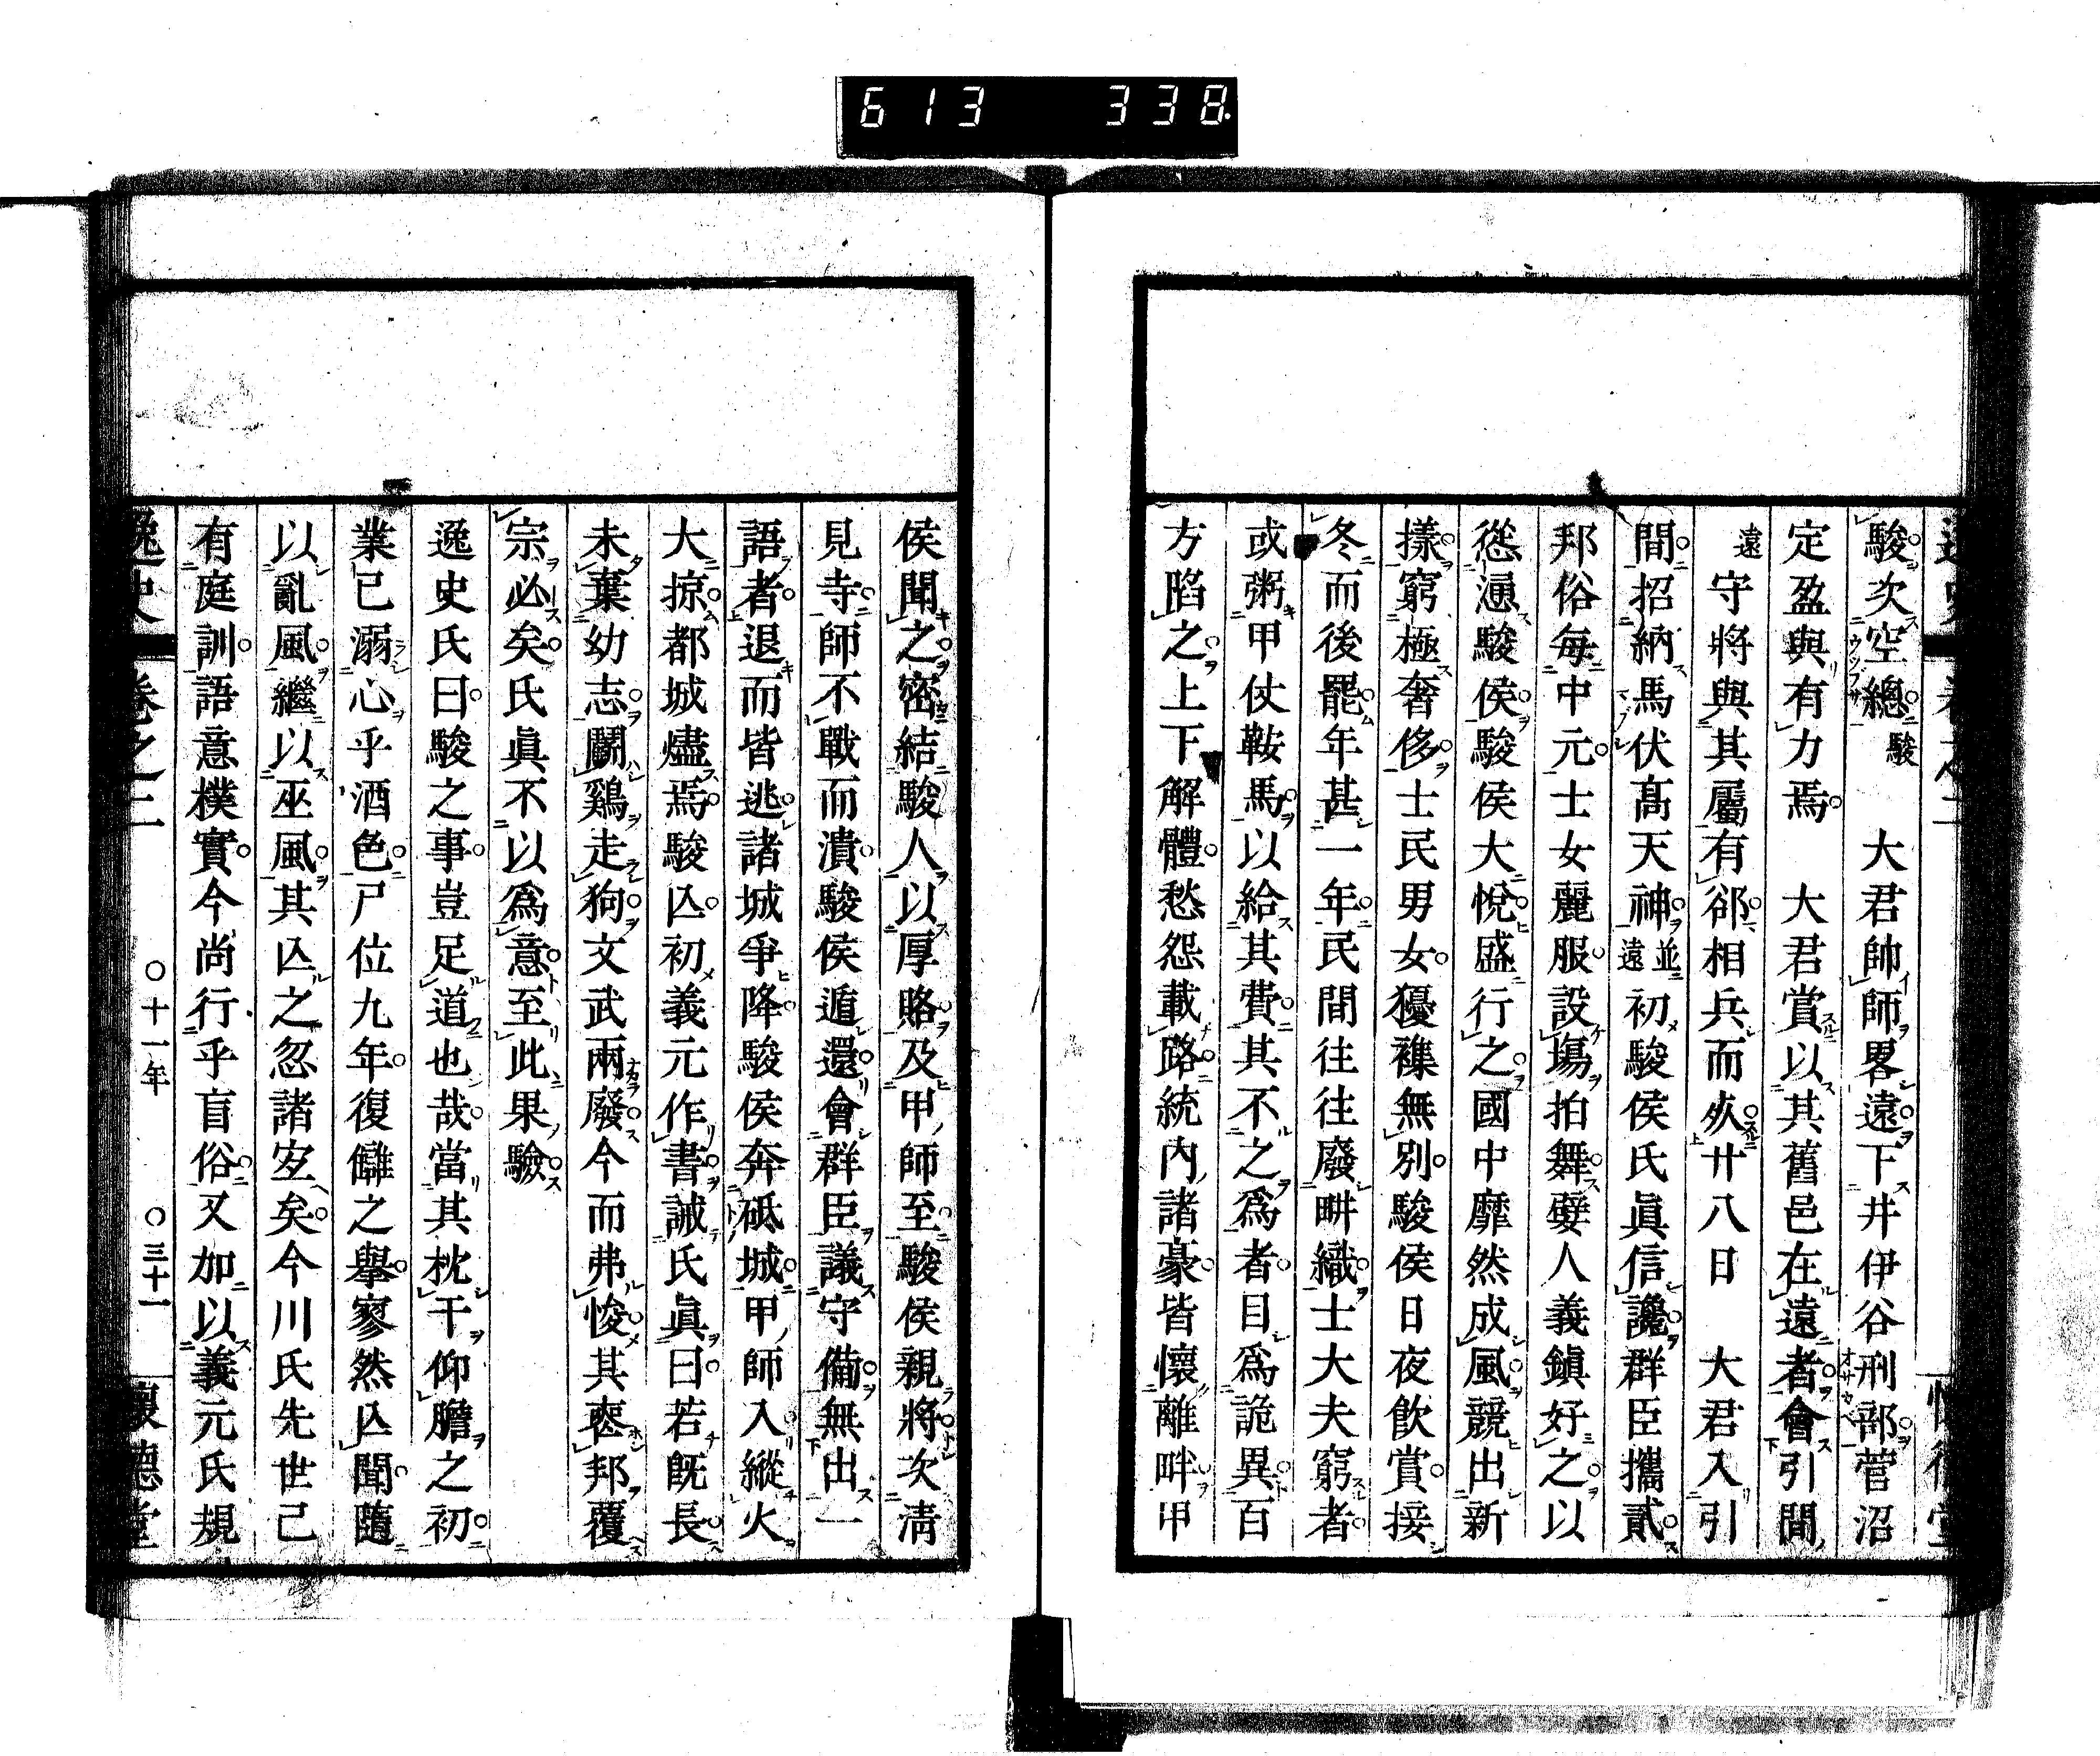 613 338
駿次空總駿 大君帥師畧遠下井伊谷刑部菅沼
定盈與有力焉 大君賞以其舊邑在遠者會引間
遠守將與其屬有郤相兵而㱙廿八日 大君入引
間招納馬伏髙天神並遠初駿侯氏眞信讒群臣攜貳
邦俗每中元士女麗服設場拍舞嬖人義鎭好之以
慫慂駿侯駿侯大悅盛行之國中靡然成風競出新
㨾窮極奢侈士民男女獶襍無別駿侯日夜飮賞接
冬而後罷年甚一年民間往往廢畊織士大夫窮者
或粥甲仗鞍馬以給其費其不之爲者目爲詭異百
方陷之上下解體愁怨載路統內諸豪皆懷離畔甲
侯聞之密結駿人以厚賂及甲師至駿侯親將次淸
見寺師不戰而潰駿侯遁還會群臣議守備無出一
語者退而皆逃諸城爭降駿侯奔砥城甲師入縱火
大掠都城燼焉駿亾初義元作書誡氏眞曰若旣長
未棄幼志鬪鷄走狗文武兩廢今而弗悛其喪邦覆
宗必矣氏眞不以爲意至此果驗
逸史氏曰駿之事豈足道也哉當其枕干仰膽之初
業已溺心乎酒色尸位九年復讎之擧寥然亾聞隨
以亂風繼以巫風其亾之忽諸宜矣今川氏先世已
有庭訓語意樸實今尚行乎盲俗又加以義元氏規
逸史 卷之二 〇十一年 〇三十一 懷德堂